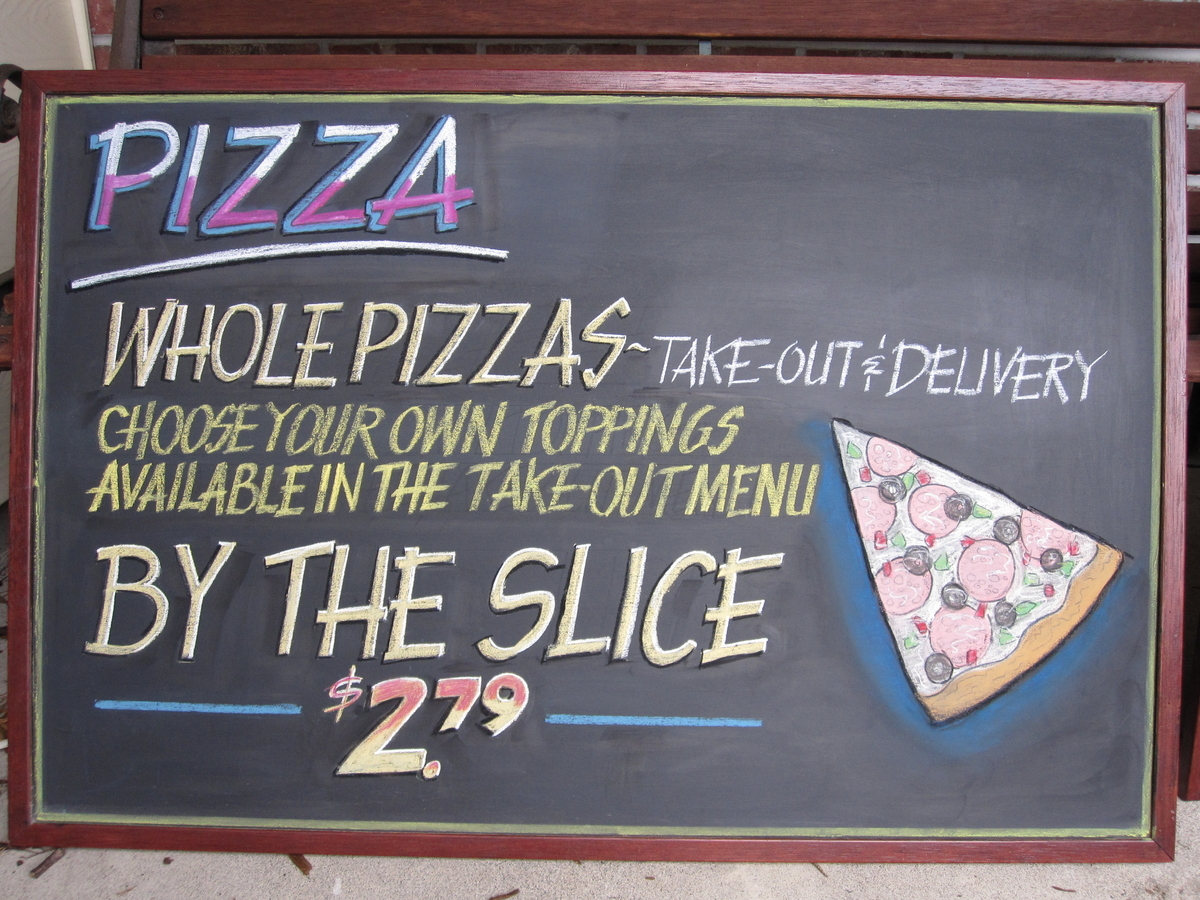 PIZZA
WHOLE PIZZAS~TAKE-OUT & DELIVERY
CHOOSE YOUR OWN TOPPINGS
AVAILABLE IN THE TAKE-OUT MENU
BY THE SLICE
$2.79